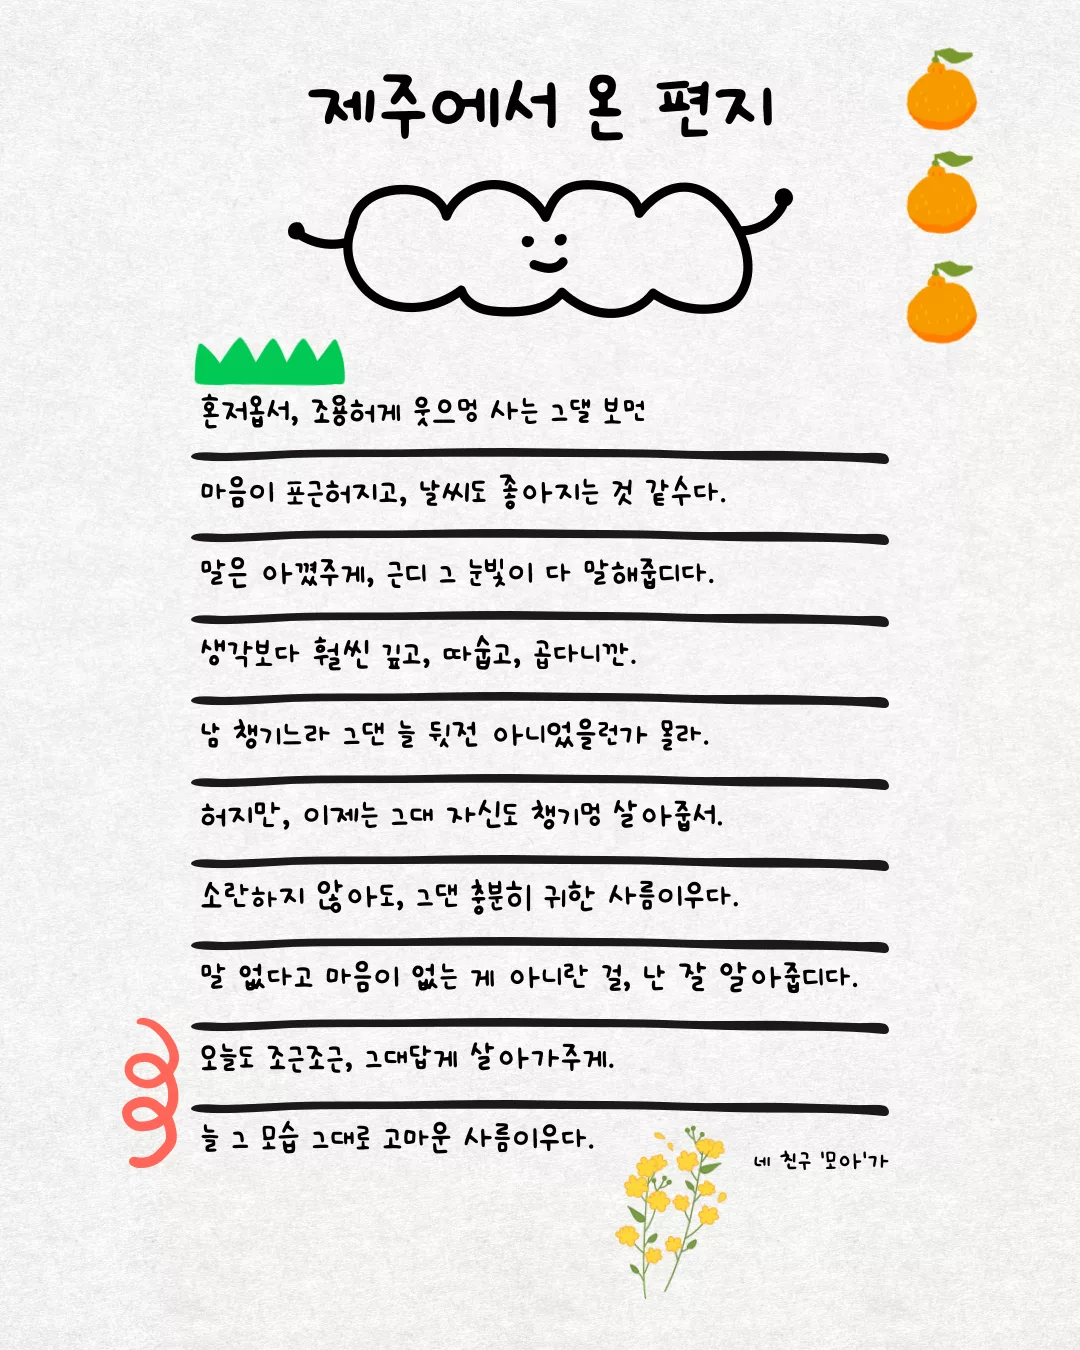 제주에서 온 편지
혼저옵서, 조용허게 웃으멍 사는 그댈 보먼
마음이 포근허지고, 날씨도 좋아지는 것 같수다.
말은 아꼈주게, 근디 그 눈빛이 다 말해줍디다.
생각보다 훨씬 깊고, 따숩고, 곱다니깐.
남 챙기느라 그댄 늘 뒷전 아니었을런가 몰라.
허지만, 이제는 그대 자신도 챙기멍 살아줍서.
소란하지 않아도, 그댄 충분히 귀한 사름이우다.
말 없다고 마음이 없는 게 아니란 걸, 난 잘 알아줍디다.
오늘도 조근조근, 그대답게 살아가주게.
늘 그 모습 그대로 고마운 사름이우다.
네 친구 '모아'가